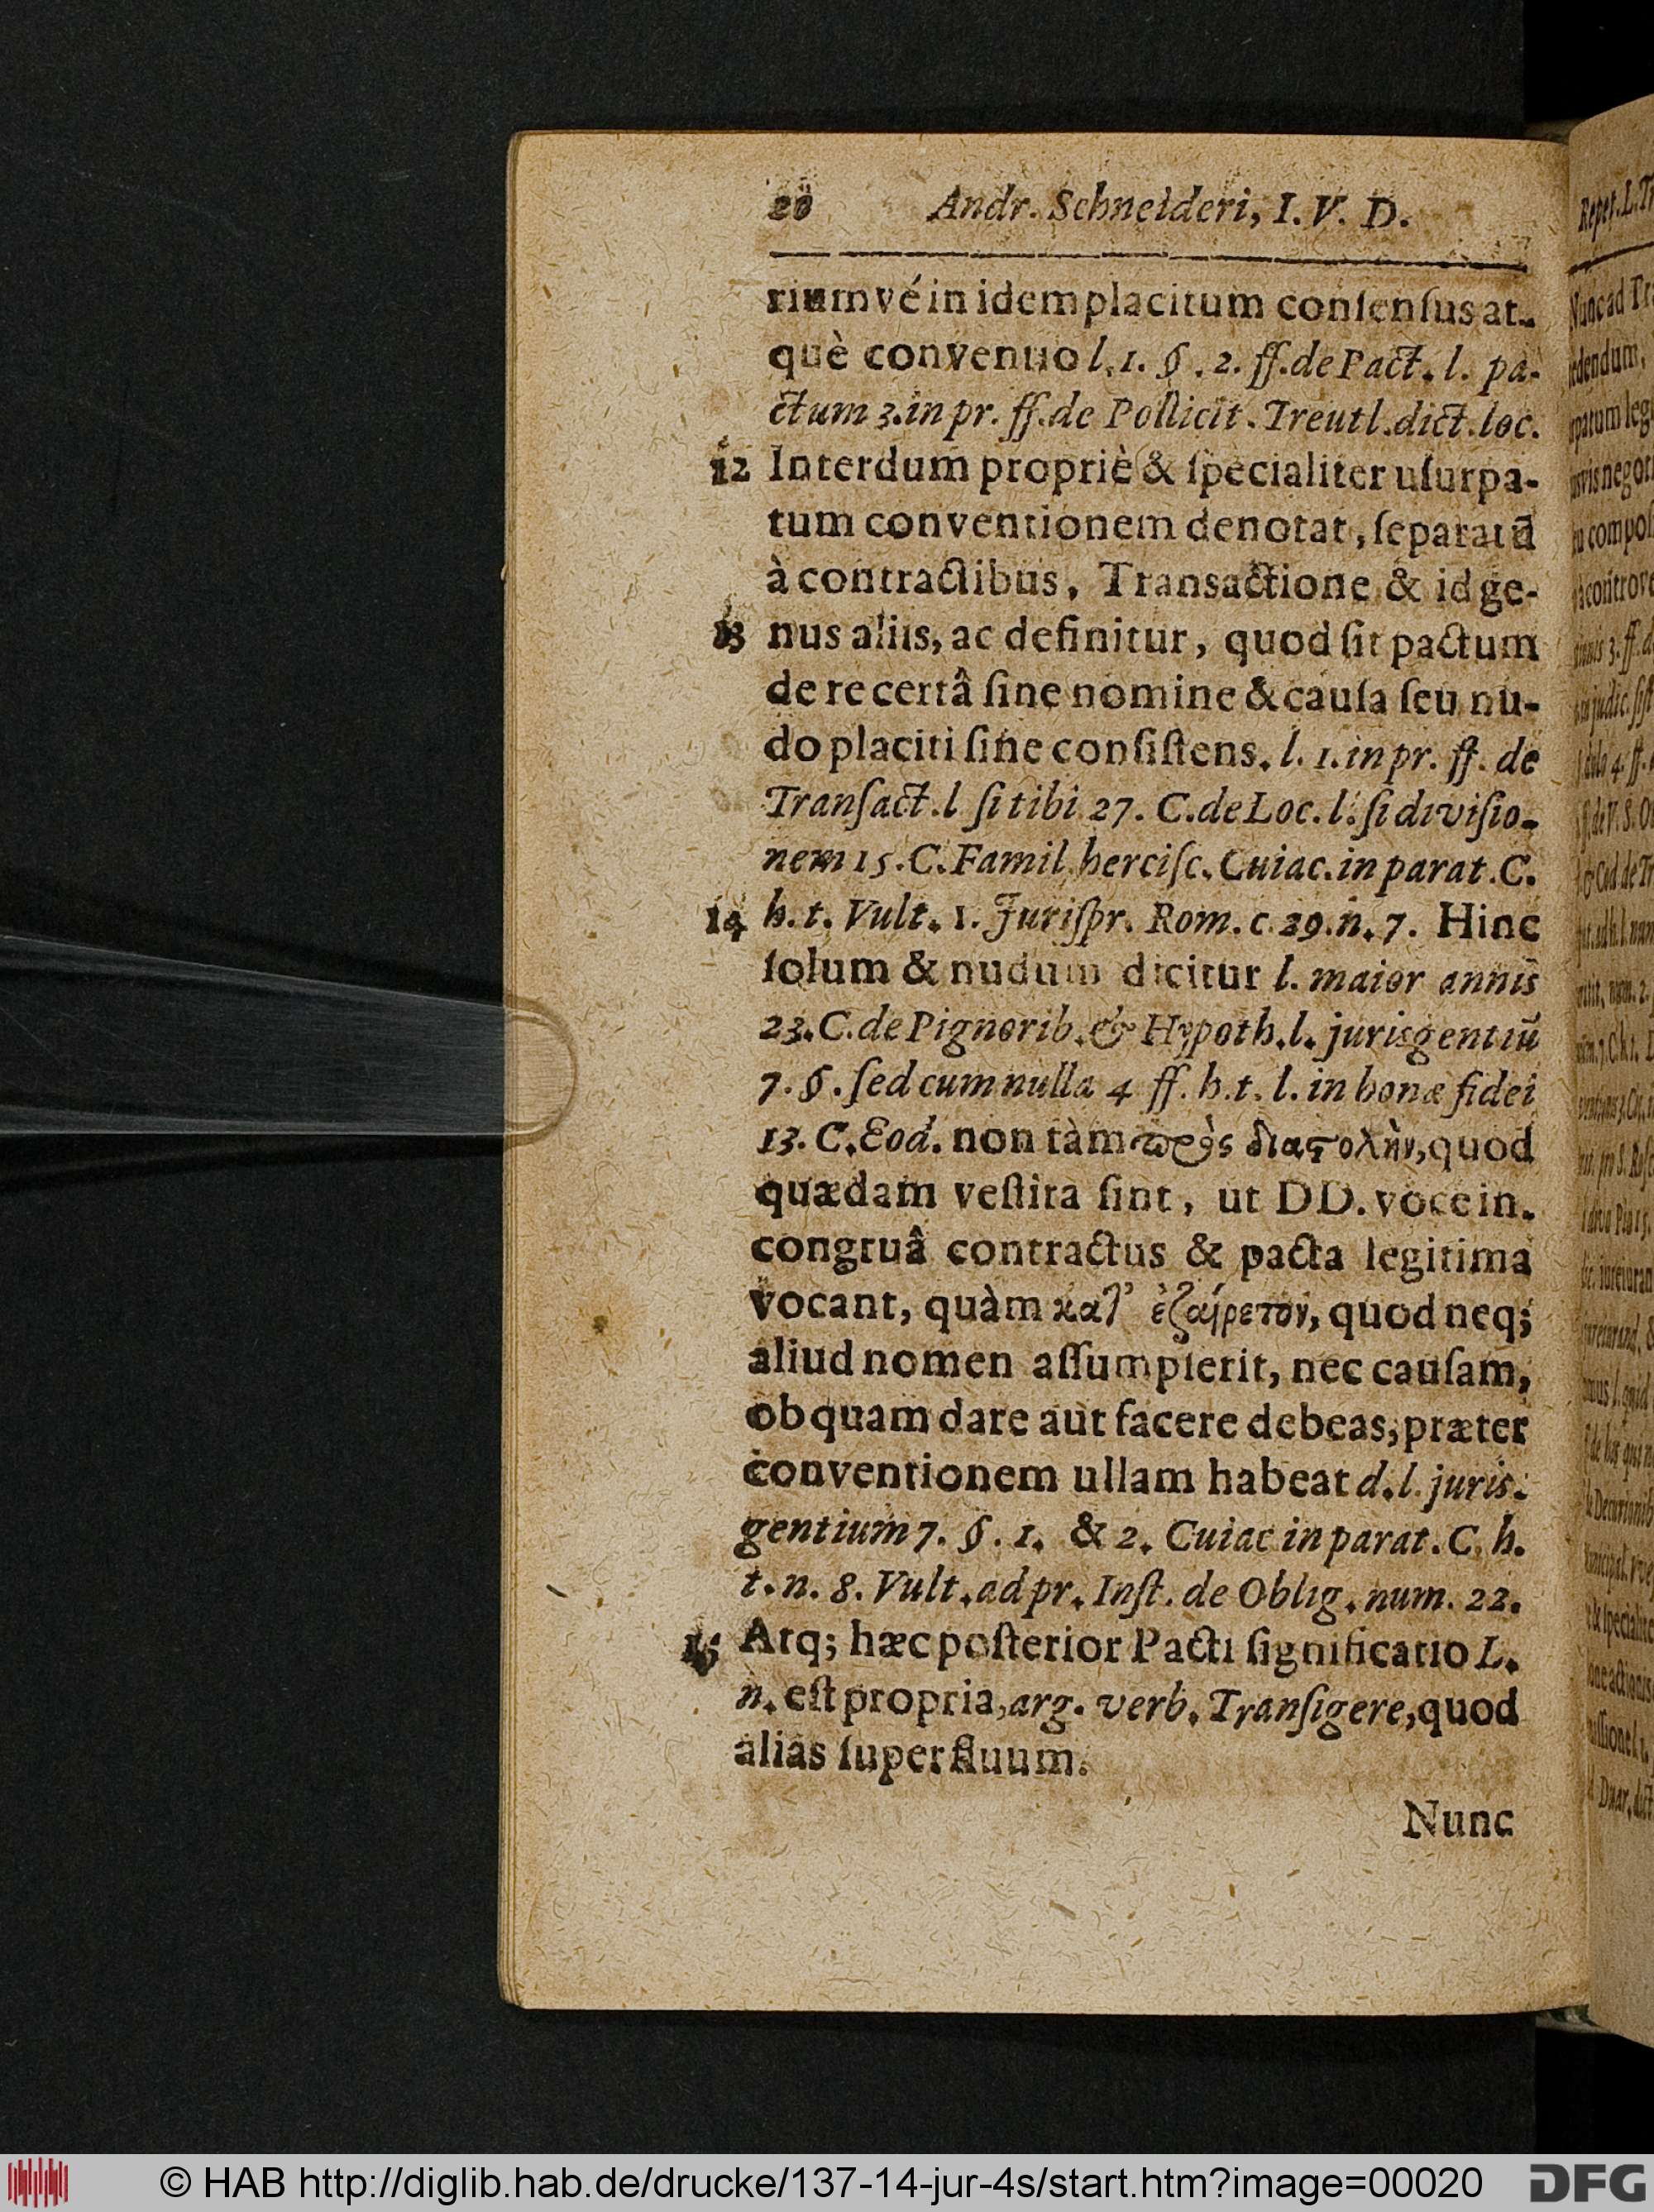 20 Andr. Schneideri, I. V. D.
riumvé in idem placitum conſenſus at-
què convenuo l. 1. § . 2. ff. de Pact. l. pa-
ctum 3. in pr. ff. de Pollicit. Treutl. dict. loc.
12 Interdum propriè & ſpecialiter uſurpa-
tum conventionem denotat, ſeparatũ
à contractibus, Transactione & id ge-
13 nus aliis, ac definitur, quod ſit pactum
de re certâ ſine nomine & cauſa ſeu nu-
do placiti ſine conſiſtens. l. 1. in pr. ff. de
Tranſact. l ſi tibi 27. C. de Loc. l. ſi diviſio-
nem 15. C. Famil herciſc. Cuiac. in parat. C.
14 h. t. Vult. 1. Juriſpr. Rom. c. 29. n. 7. Hinc
ſolum & nudum dicitur l. maior annis
23. C. de Pignorib. & Hypoth. l. juris gentiũ
7. § . ſed cum nulla 4 ff. h. t. l. in bonæ fidei
13. C. Eod. non tàm πρὸς διαστολὴν, quod
quædam veſtita ſint, ut DD. voce in.
congruâ contractus & pacta legitima
vocant, quàm κατ’ ἐξαίρετον, quod neq;
aliud nomen aſſumpſerit, nec cauſam,
ob quam dare aut facere debeas, præter
conventionem ullam habeat d. l. juris.
gentium 7. § . 1. & 2. Cuiac in parat. C. h.
t. n. 8. Vult. ad pr. Inſt. de Oblig. num. 22.
15 Atq; hæc poſterior Pacti ſignificatio L.
n. eſt propria, arg. verb. Tranſigere, quod
alias ſuperfluum.
Nunc
© HAB http://diglib.hab.de/drucke/137-14-jur-4s/start.htm?image=00020
DFG